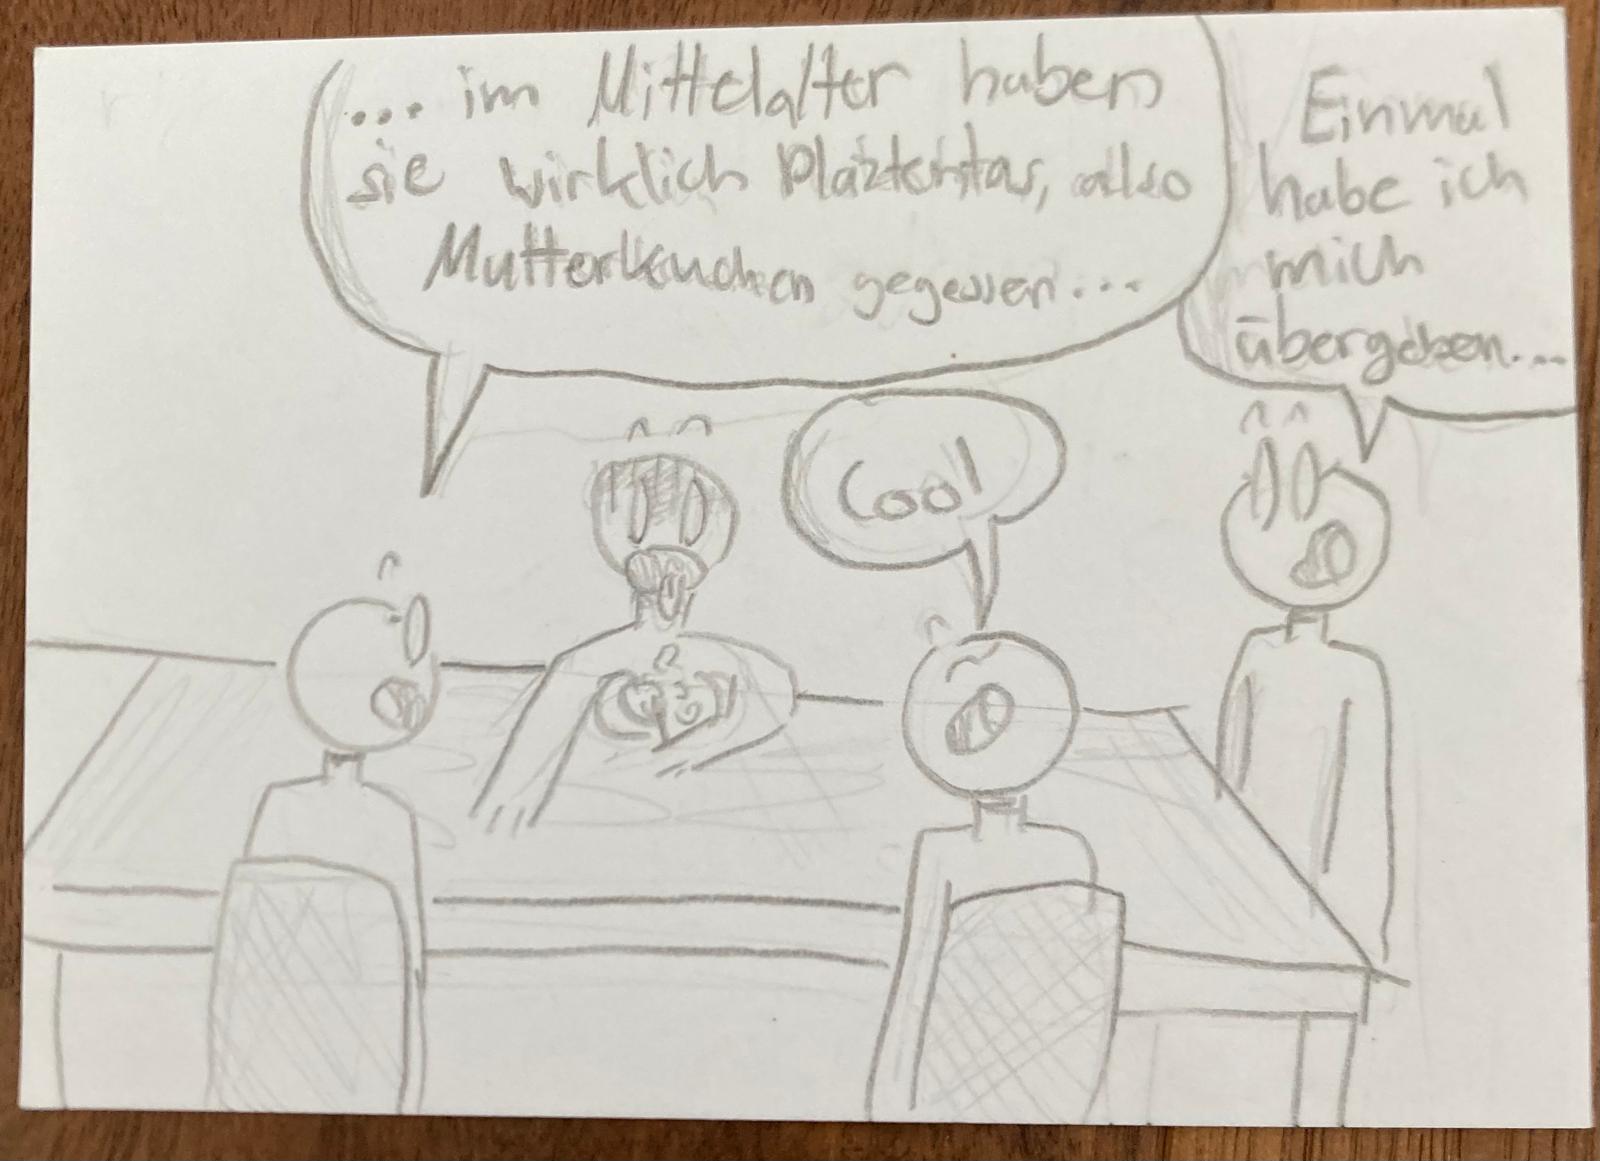 ... im Mittelalter haben
sie wirklich Plazentas, also
Mutterkuchen gegessen...
Einmal
habe ich
mich
übergeben...
Cool